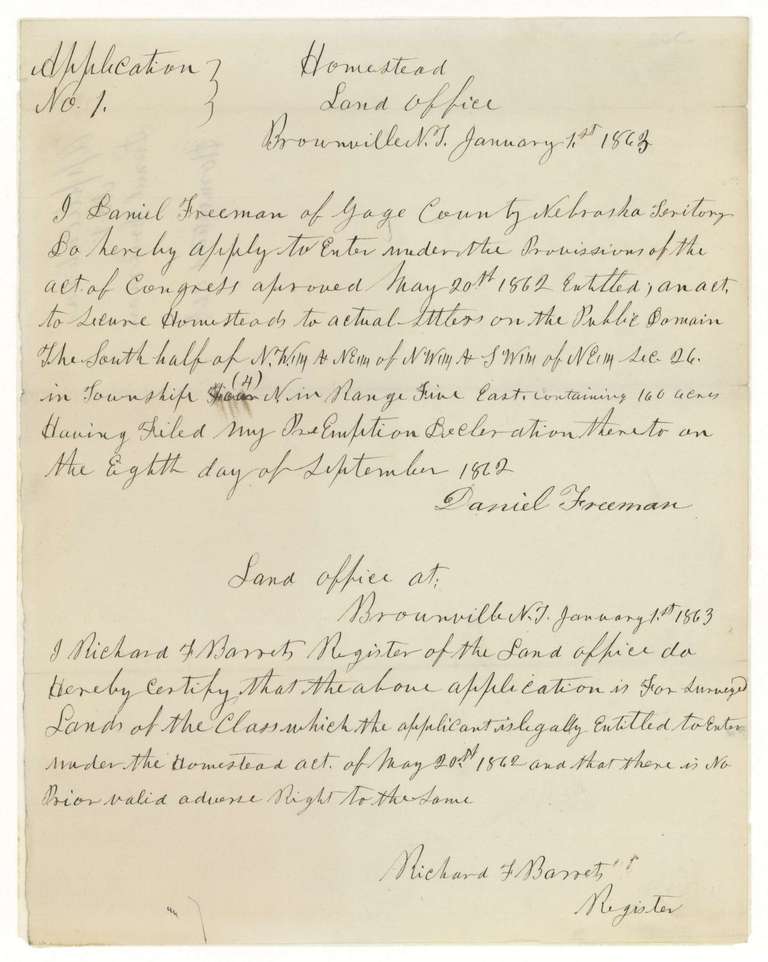 Application } Homestead
No. 1. } Land office
Brownville N.T. January 1.st 1863
I Daniel Freeman of Gage County Nebraska Teritory
Do hereby apply to Enter under the Provissions of the
act of Congress aproved May 20th 1862 Entitled, an act,
to secure Homesteads to actual settlers on the Public Domain
The South half of N.W.1/4 & NE1/4 of NW1/4 & SW1/4 of NE1/4 Sec. 26.
in Township Four (4) N in Range Five East. containing 160 acres
Having Filed my PreEmption Decleration thereto on
the Eighth day of September 1862
Daniel Freeman
Land office at;
Brownville N.T. January 1.st 1863
I Richard F Barrets Register of the Land office do
Hereby Certify, that the above application is For Surveyed
Lands of the Class which the applicant is legally Entitled to Enter
under the Homestead act. of May 20th 1862 and that there is No
Prior valid adverse Right to the Same
Richard F Barrets
Register